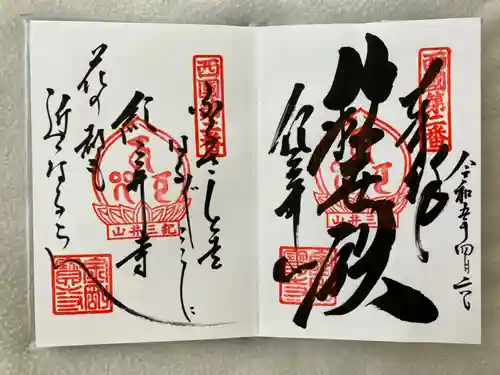 西國第二番
奉拝
救世殿
紀三井
山井三紀
令和五年四月
西國第二番
ふるさとを
はるばるここに
紀三井寺
花の都も
近くなるらん
山井三紀